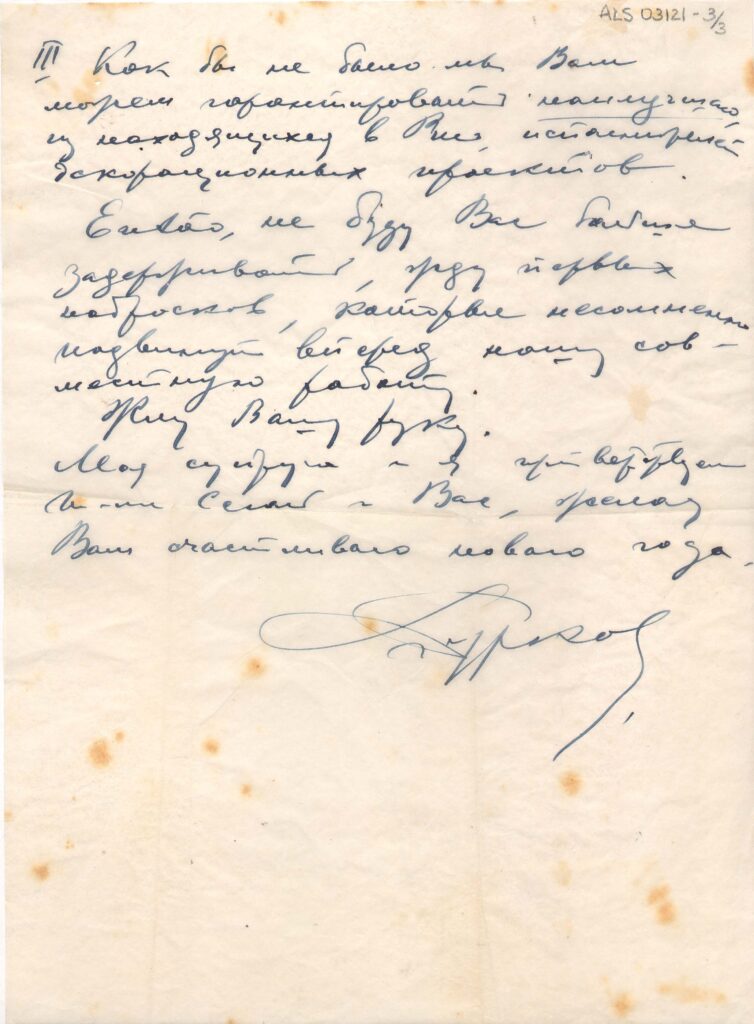 ALS 03121 - 3/3
III Как бы не было мы Вам
можем гарантировать наилучшаго,
из находящихся в Рио, исполнителя
декорационных проектов.
Então, не буду Вас больше
задерживать, жду первых
набросков, которые несомненно
подвинут вперед нашу сов-
местную работу.
Жму Вашу руку.
Моя супруга и я приветствуем
и Вас, желая
Вам счастливаго новаго года.